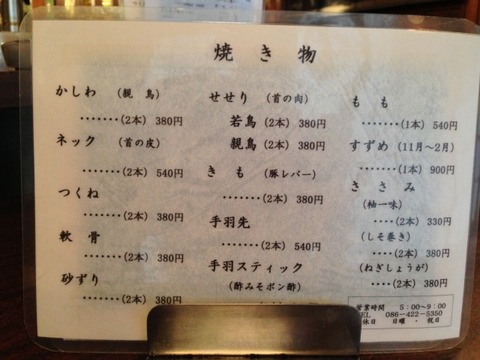 焼き物
かしわ (親鳥)
・・・・・・・(2本) 380円
ネック (首の皮)
・・・・・・・(2本) 540円
つくね
・・・・・・・(2本) 380円
軟骨
・・・・・・・(2本) 380円
砂ずり
・・・・・・・(2本) 380円
せせり (首の肉)
若鳥 (2本) 380円
親鳥 (2本) 380円
きも (豚レバー)
・・・・・・・(2本) 380円
手羽先
・・・・・・・(2本) 540円
手羽スティック
(酢みそポン酢)
もも
・・・・・・・(1本) 540円
すずめ (11月～2月)
・・・・・・・(1本) 900円
ささみ
(柚一味)
・・・・(2本) 330円
(しそ巻き)
・・・・(2本) 380円
(ねぎしょうが)
・・・・(2本) 380円
営業時間 5:00～9:00
TEL 086-422-5350
休日 日曜・祝日